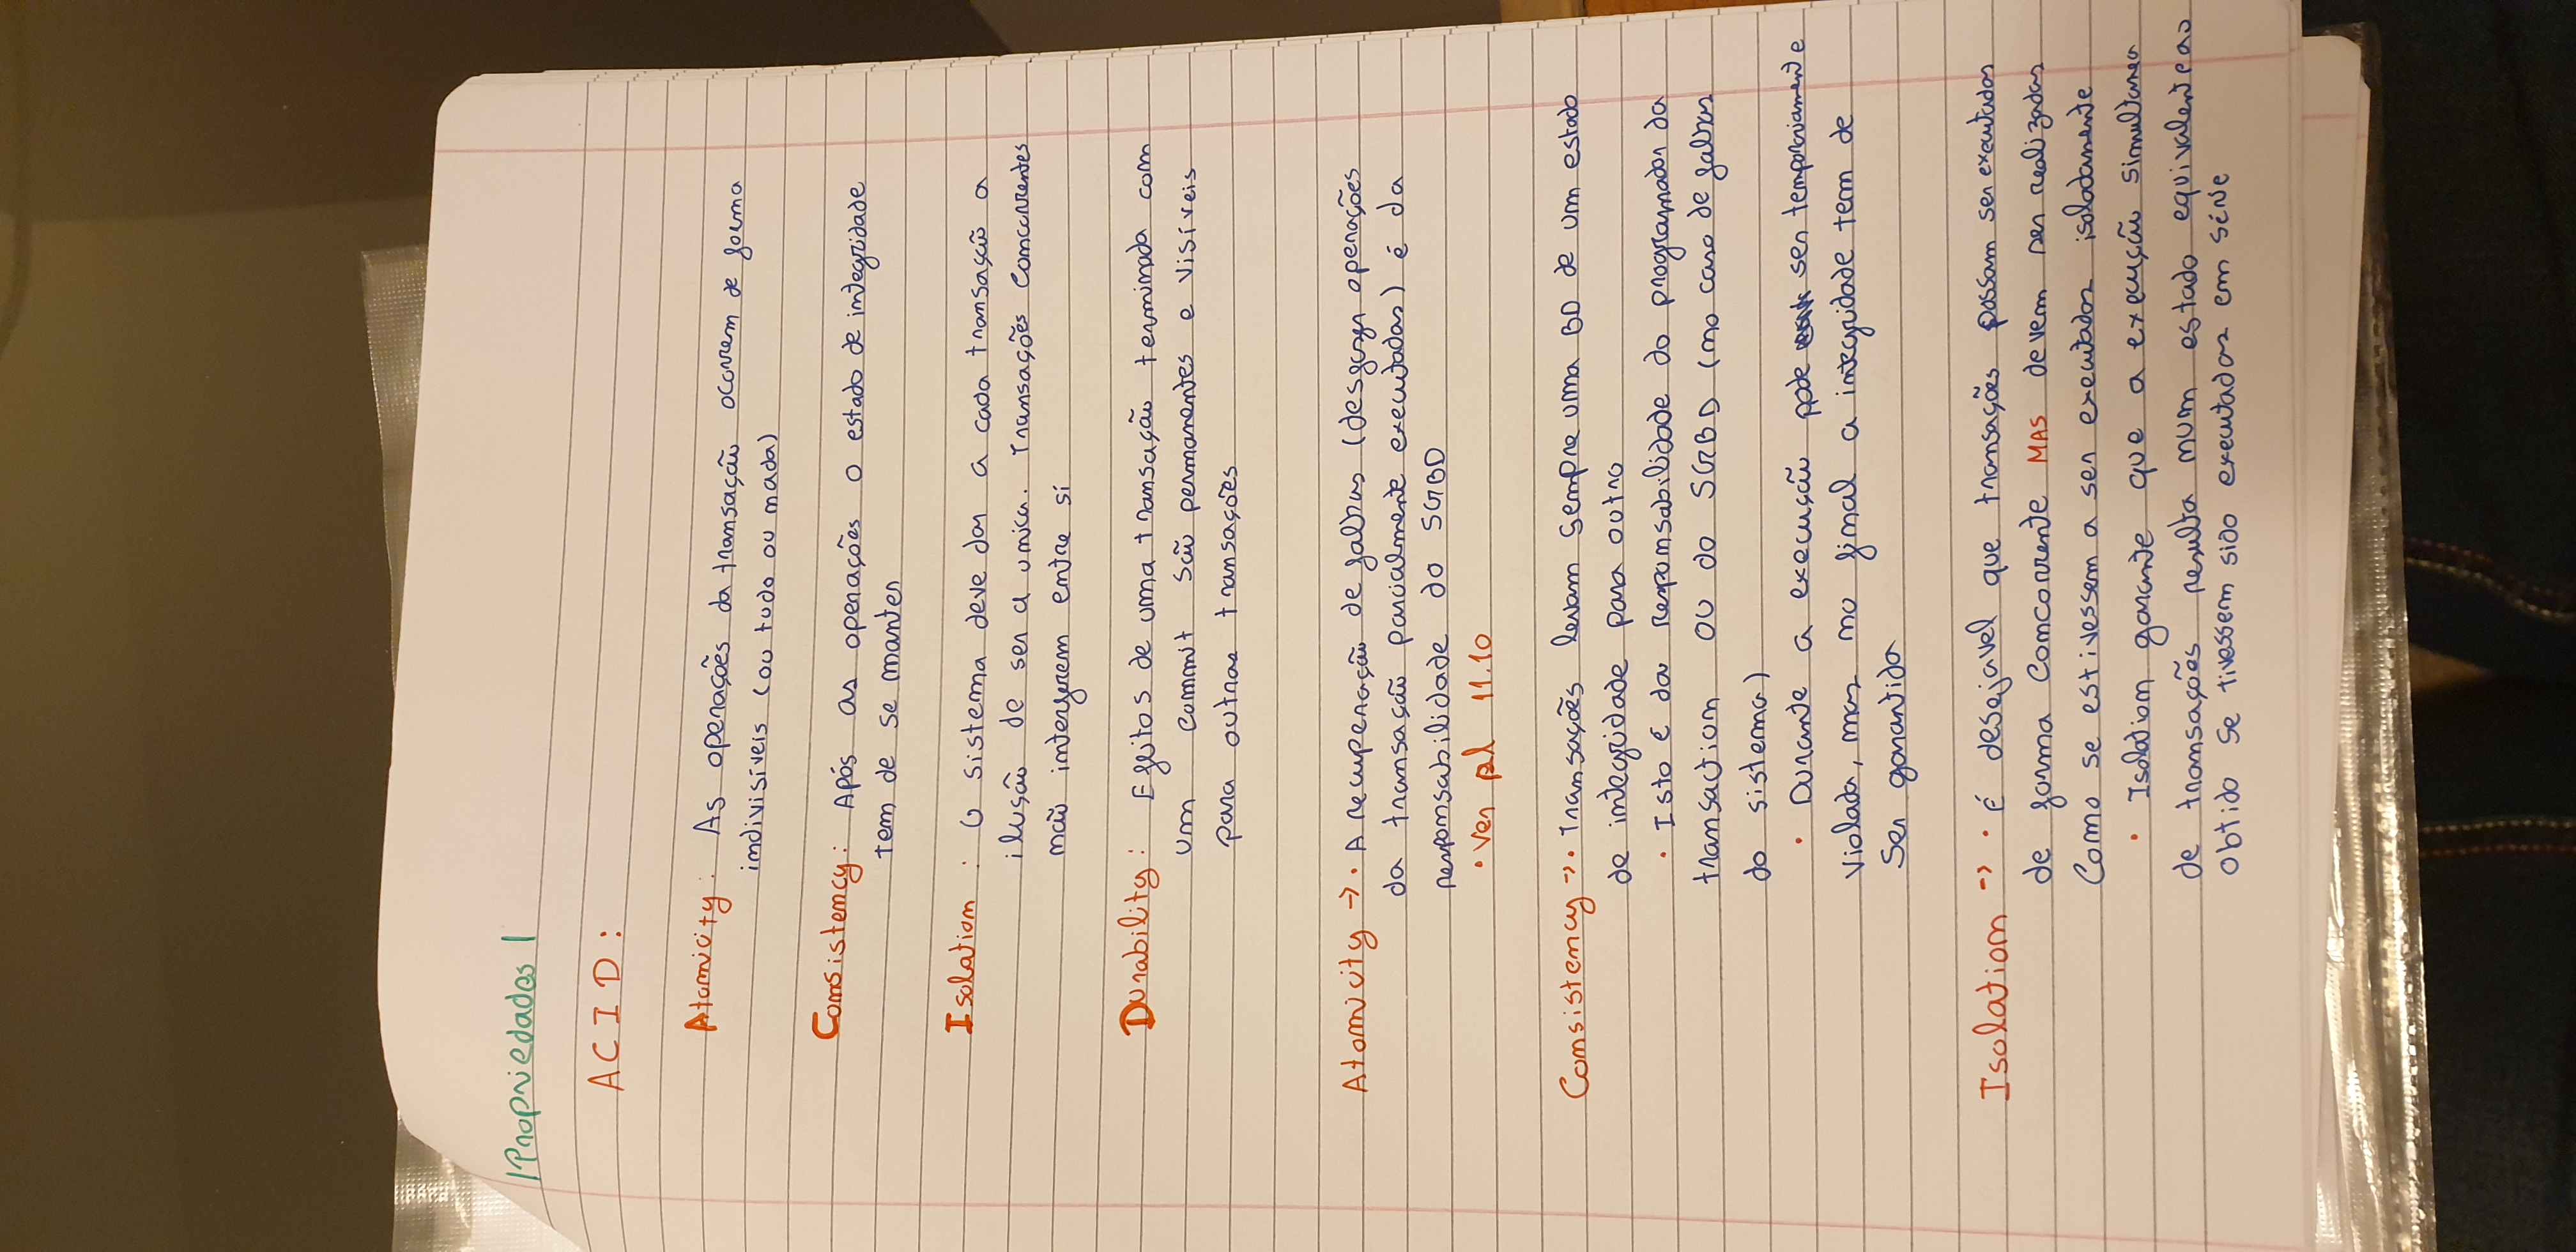 |Propriedades|
ACID:
Atomicity: As operações da transação ocorrem de forma
indivisíveis (ou tudo ou nada)
Consistency: Após as operações o estado de integridade
tem de se manter
Isolation : O sistema deve dar a cada transação a
ilusão de ser a unica. Transações concorrentes
não interferem entre si
Durability: Efeitos de uma transação terminada com
um commit são permanentes e visíveis
para outras transações
Atomicity → • A recuperação de falhas (desfazer operações
da transação parcialmente executadas) é da
responsabilidade do SGBD
• Ver pl 11.10
Consistency → • Transações levam sempre uma BD de um estado
de integridade para outro
• Isto é da responsabilidade do programador da
transaction ou do SGBD (no caso de falhas
do sistema)
• Durante a execução pode ser temporariamente
violada, mas no final a integridade tem de
ser garantida
Isolation → • É desejavel que transações possam ser executadas
de forma concorrente MAS devem ser realizadas
como se estivessem a ser executadas isoladamente
• Isolation garante que a execução simultanea
de transações resulta num estado equivalente ao
obtido se tivessem sido executadas em série